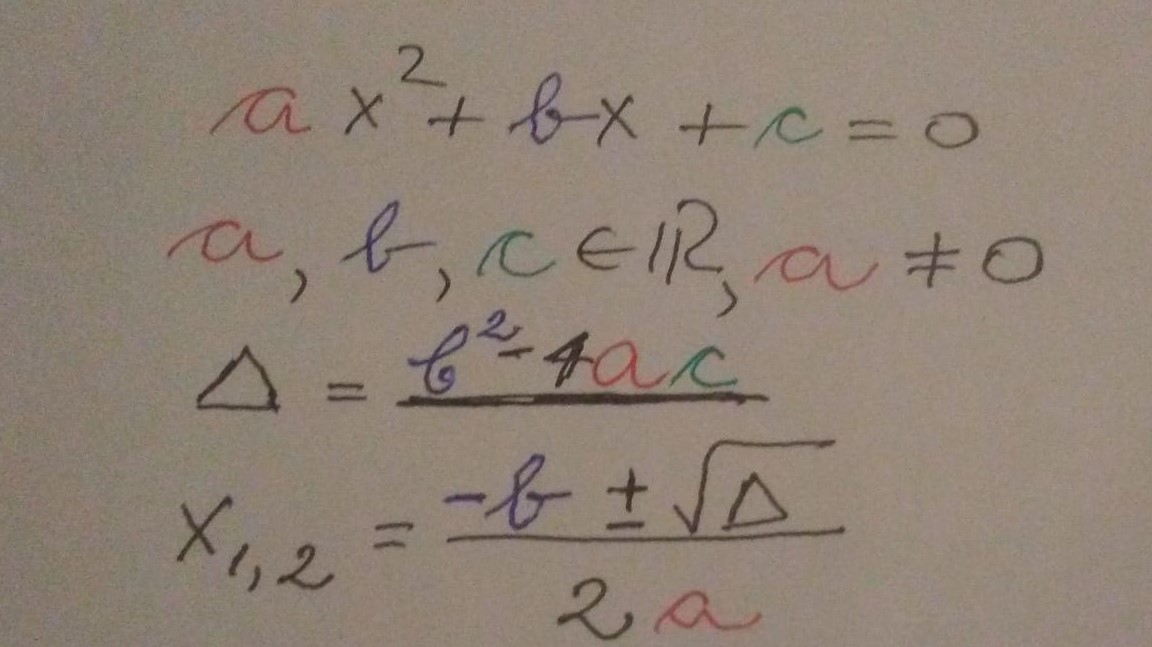 ax² + bx + c = 0
a, b, c ∈ ℝ, a ≠ 0
Δ = b² - 4ac
x₁,₂ = (-b ± √Δ) / 2a